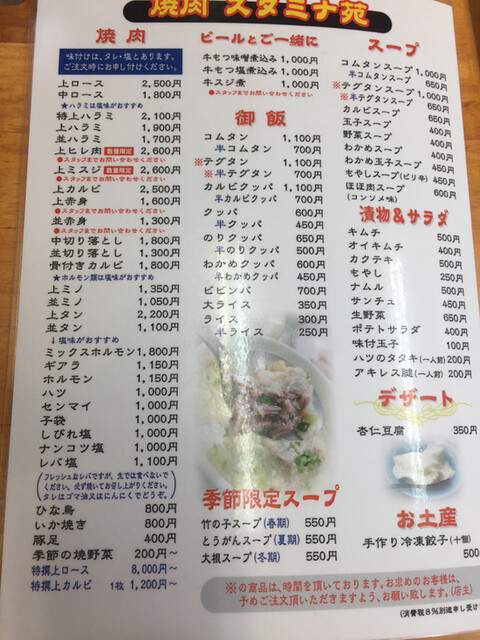 焼肉 スタミナ苑
焼 肉
味付けは、タレ・塩とあります。
ご注文時にお申し付けください。
上ロース 2,500円
中ロース 1,800円
★ハラミは塩味がおすすめ
特上ハラミ 2,100円
上ハラミ 1,900円
並ハラミ 1,700円
上ヒレ肉 数量限定 2,600円
●スタッフまでお問い合わせください
上ミスジ 数量限定 2,600円
●スタッフまでお問い合わせください
上カルビ 2,500円
上赤身 1,600円
●スタッフまでお問い合わせください
並赤身 1,300円
●スタッフまでお問い合わせください
中切り落とし 1,800円
並切り落とし 1,300円
骨付きカルビ 1,800円
★ホルモン類は塩味がおすすめ
上ミノ 1,350円
並ミノ 1,050円
上タン 2,200円
並タン 1,100円
↓塩味がおすすめ
ミックスホルモン 1,800円
ギアラ 1,150円
ホルモン 1,150円
ハツ 1,000円
センマイ 1,000円
子袋 1,000円
しびれ塩 1,000円
ナンコツ塩 1,000円
レバ塩 1,100円
フレッシュなレバですが、生では食べないで
ください。必ず焼いてお召し上がりください。
タレはゴマ油又はにんにくでどうぞ。
ひな鳥 800円
いか焼き 800円
豚足 400円
季節の焼野菜 200円〜
特撰上ロース 8,000円〜
特撰上カルビ 1枚 1,200円〜
ビールとご一緒に
牛もつ味噌煮込み 1,000円
牛もつ塩煮込み 1,000円
牛スジ煮 1,000円
●スタッフまでお問い合わせください
御 飯
コムタン 1,100円
半コムタン 700円
※テグタン 1,100円
※半テグタン 700円
カルビクッパ 1,100円
半カルビクッパ 700円
クッパ 600円
半クッパ 450円
のりクッパ 650円
半のりクッパ 500円
わかめクッパ 600円
半わかめクッパ 450円
ビビンバ 700円
大ライス 350円
ライス 300円
半ライス 250円
季節限定スープ
竹の子スープ(春期) 550円
とうがんスープ(夏期) 550円
大根スープ(冬期) 550円
スープ
コムタンスープ 1,000円
半コムタンスープ 650円
※テグタンスープ 1,000円
※半テグタンスープ 650円
カルビスープ 650円
玉子スープ 400円
野菜スープ 400円
わかめスープ 400円
わかめ玉子スープ 450円
もやしスープ(ピリ辛) 450円
ほほ肉スープ 600円
(コンソメ味)
漬物&サラダ
キムチ 500円
オイキムチ 400円
カクテキ 500円
もやし 250円
ナムル 500円
サンチュ 450円
生野菜 650円
ポテトサラダ 400円
味付玉子 100円
ハツのタタキ(一人前) 200円
アキレス腱(一人前) 200円
デザート
杏仁豆腐 350円
お土産
手作り冷凍餃子(十個)
500
※の商品は、時間を頂いております。お求めのお客様は、
予めご注文頂いただきますよう、お願い致します。(店主)
(消費税8%別途申し受け